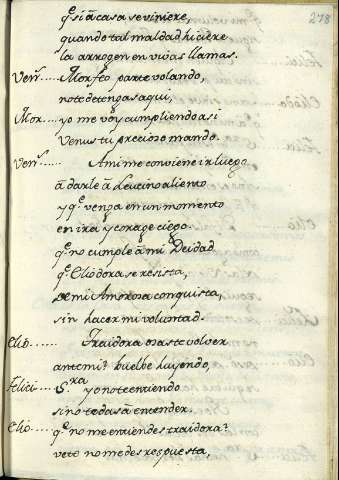 278
q̃. si à casa se viniere,
quando tal maldad hiciere
la arrogen en vivas llamas.
Ven.s ..... Morfeo parte volando,
no te detengas aqui,
Mor ..... yo me voy cumpliendo asi
Venus tu precioso mando.
Ven.s ..... A mi me conviene ir luego
à darle à Leucino aliento
y q̃. venga en un momento
en ira y corage ciego.
q̃. no cumple à mi Deidad
q̃. Cliodora se resista,
de mi Amorosa conquista,
sin hacer mi voluntad.
Clio. ..... Traidora osaste volver
ante mi? buelbe huyendo,
Felici ..... S.ra yo no te entiendo
si no te das à entender.
Clio ..... q̃. no me entiendes traidora?
vete no me des respuesta,